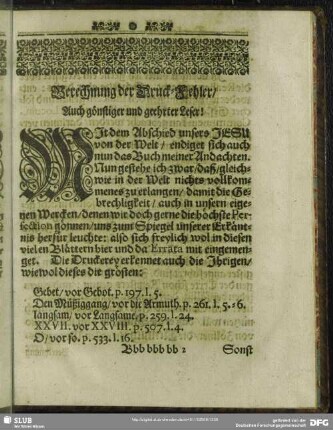 Berechnung der Druck-Fehler/
Auch gönstiger und geehrter Leser!
MIt dem Abschied unsers JESU
von der Welt / endiget sich auch
nun das Buch meiner Andachten.
Nun gestehe ich zwar / daß / gleich-
wie in der Welt nichts vollkom-
menes zu erlangen / damit die Ge-
brechligkeit / auch in unsern eige-
nen Wercken / denen wir doch gerne die höchste Per-
fection gönnen / uns zum Spiegel unserer Erkänt-
nis herfür leuchte: also sich freylich wol in diesen
vielen Blättern hier und da Errata mit eingemen-
get. Die Druckerey erkennet auch die Ihrigen/
wiewol dieses die grösten:
Gebet / vor Gebot. p. 197. l. 5.
Den Müßiggang / vor die Armuth. p. 261. l. 5. 16.
langsam / vor Langsame. p. 259. l. 24.
XXVII. vor XXVIII. p. 597. l. 4.
O / vor so. p. 533. l. 16.
Bbb bbb bb 2 Sonst
SLUB
DFG